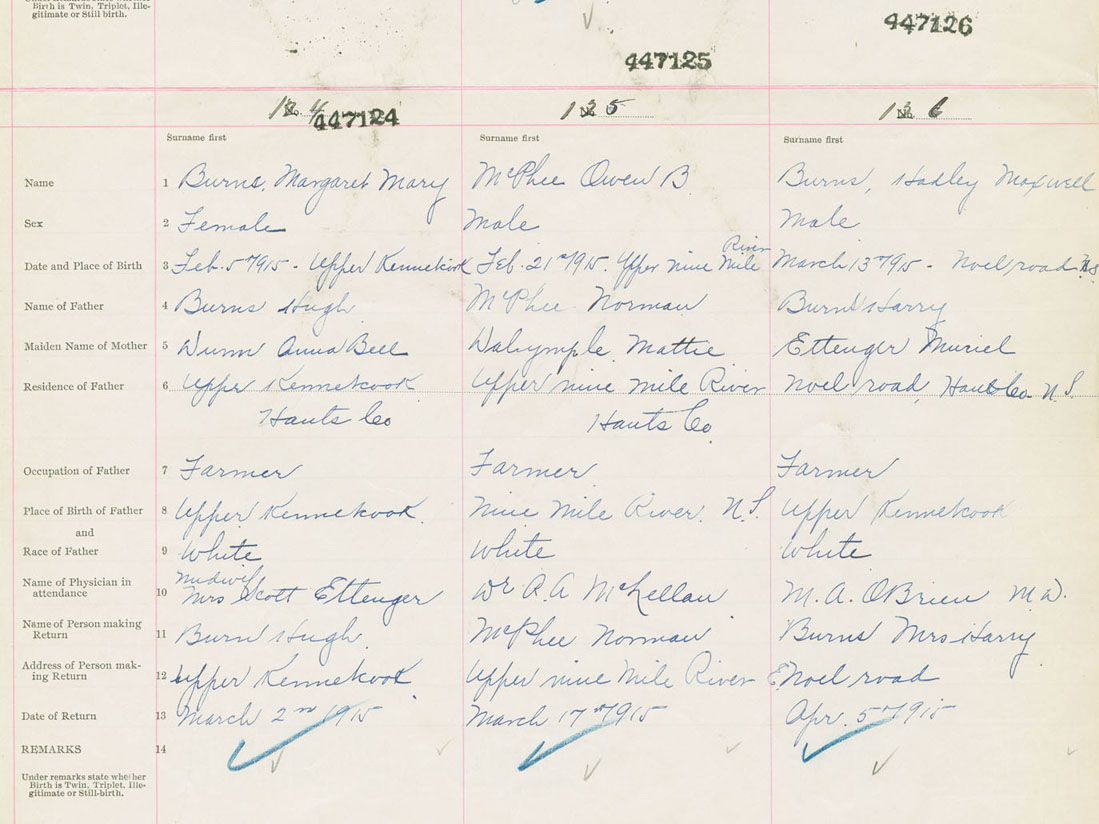 Birth is Twin, Triplet, Ille-
gitimate or Still-birth.
447126
447125
447124
124
125
126
Surname first Surname first Surname first
Name 1 Burns, Margaret Mary McPhee Owen B. Burns, Hadley Maxwell
Sex 2 Female Male Male
River
Date and Place of Birth 3 Feb. 5th 1915 - Upper Kennetcook Feb. 21st 1915. Upper nine Mile March 13th 1915 - Noel road N.S
Name of Father 4 Burns Hugh McPhee Norman Burns Harry
Maiden Name of Mother 5 Dunn Anna Bell Dalrymple Mattie Ettenger Muriel
Residence of Father 6 Upper Kennetcook Upper nine mile River Noel road, Hants Co. N.S.
Hants Co Hants Co.
Occupation of Father 7 Farmer Farmer Farmer
Place of Birth of Father 8 Upper Kennetcook. Nine Mile River. N.S. Upper Kennetcook
and
Race of Father 9 White White White
midwife
Name of Physician in
attendance 10 Mrs Scott Ettenger Dr A.A McKellan M.A. OBrien M.D.
Name of Person making
Return 11 Burn Hugh McPhee Norman Burns Mrs Harry
Address of Person mak-
ing Return 12 Upper Kennetcook Upper nine Mile River Noel road
Date of Return 13 March 2nd 1915 March 17th 1915 Apr. 5th 1915
REMARKS 14
Under remarks state whether
Birth is Twin, Triplet, Ille-
gitimate or Still-birth.